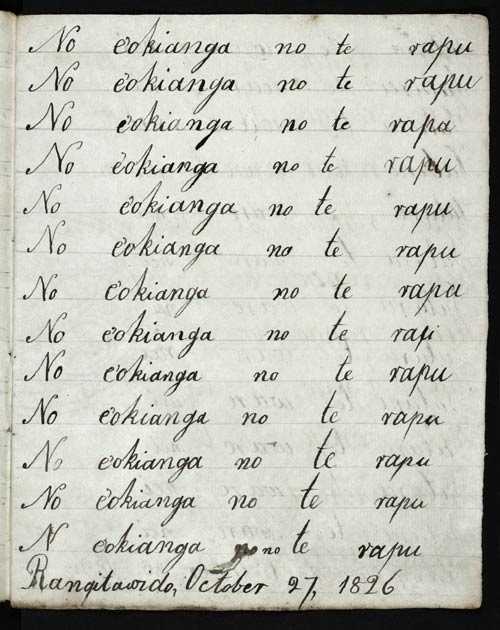 No eokianga no te rapu
No eokianga no te rapu
No eokianga no te rapa
No eokianga no te rapu
No eokianga no te rapu
No eokianga no te rapu
No eokianga no te rapu
No eokianga no te rapi
No eokianga no te rapu
No eokianga no te rapu
No eokianga no te rapu
No eokianga no te rapu
N eokianga no no te rapu
Rangitawido, October 27, 1826